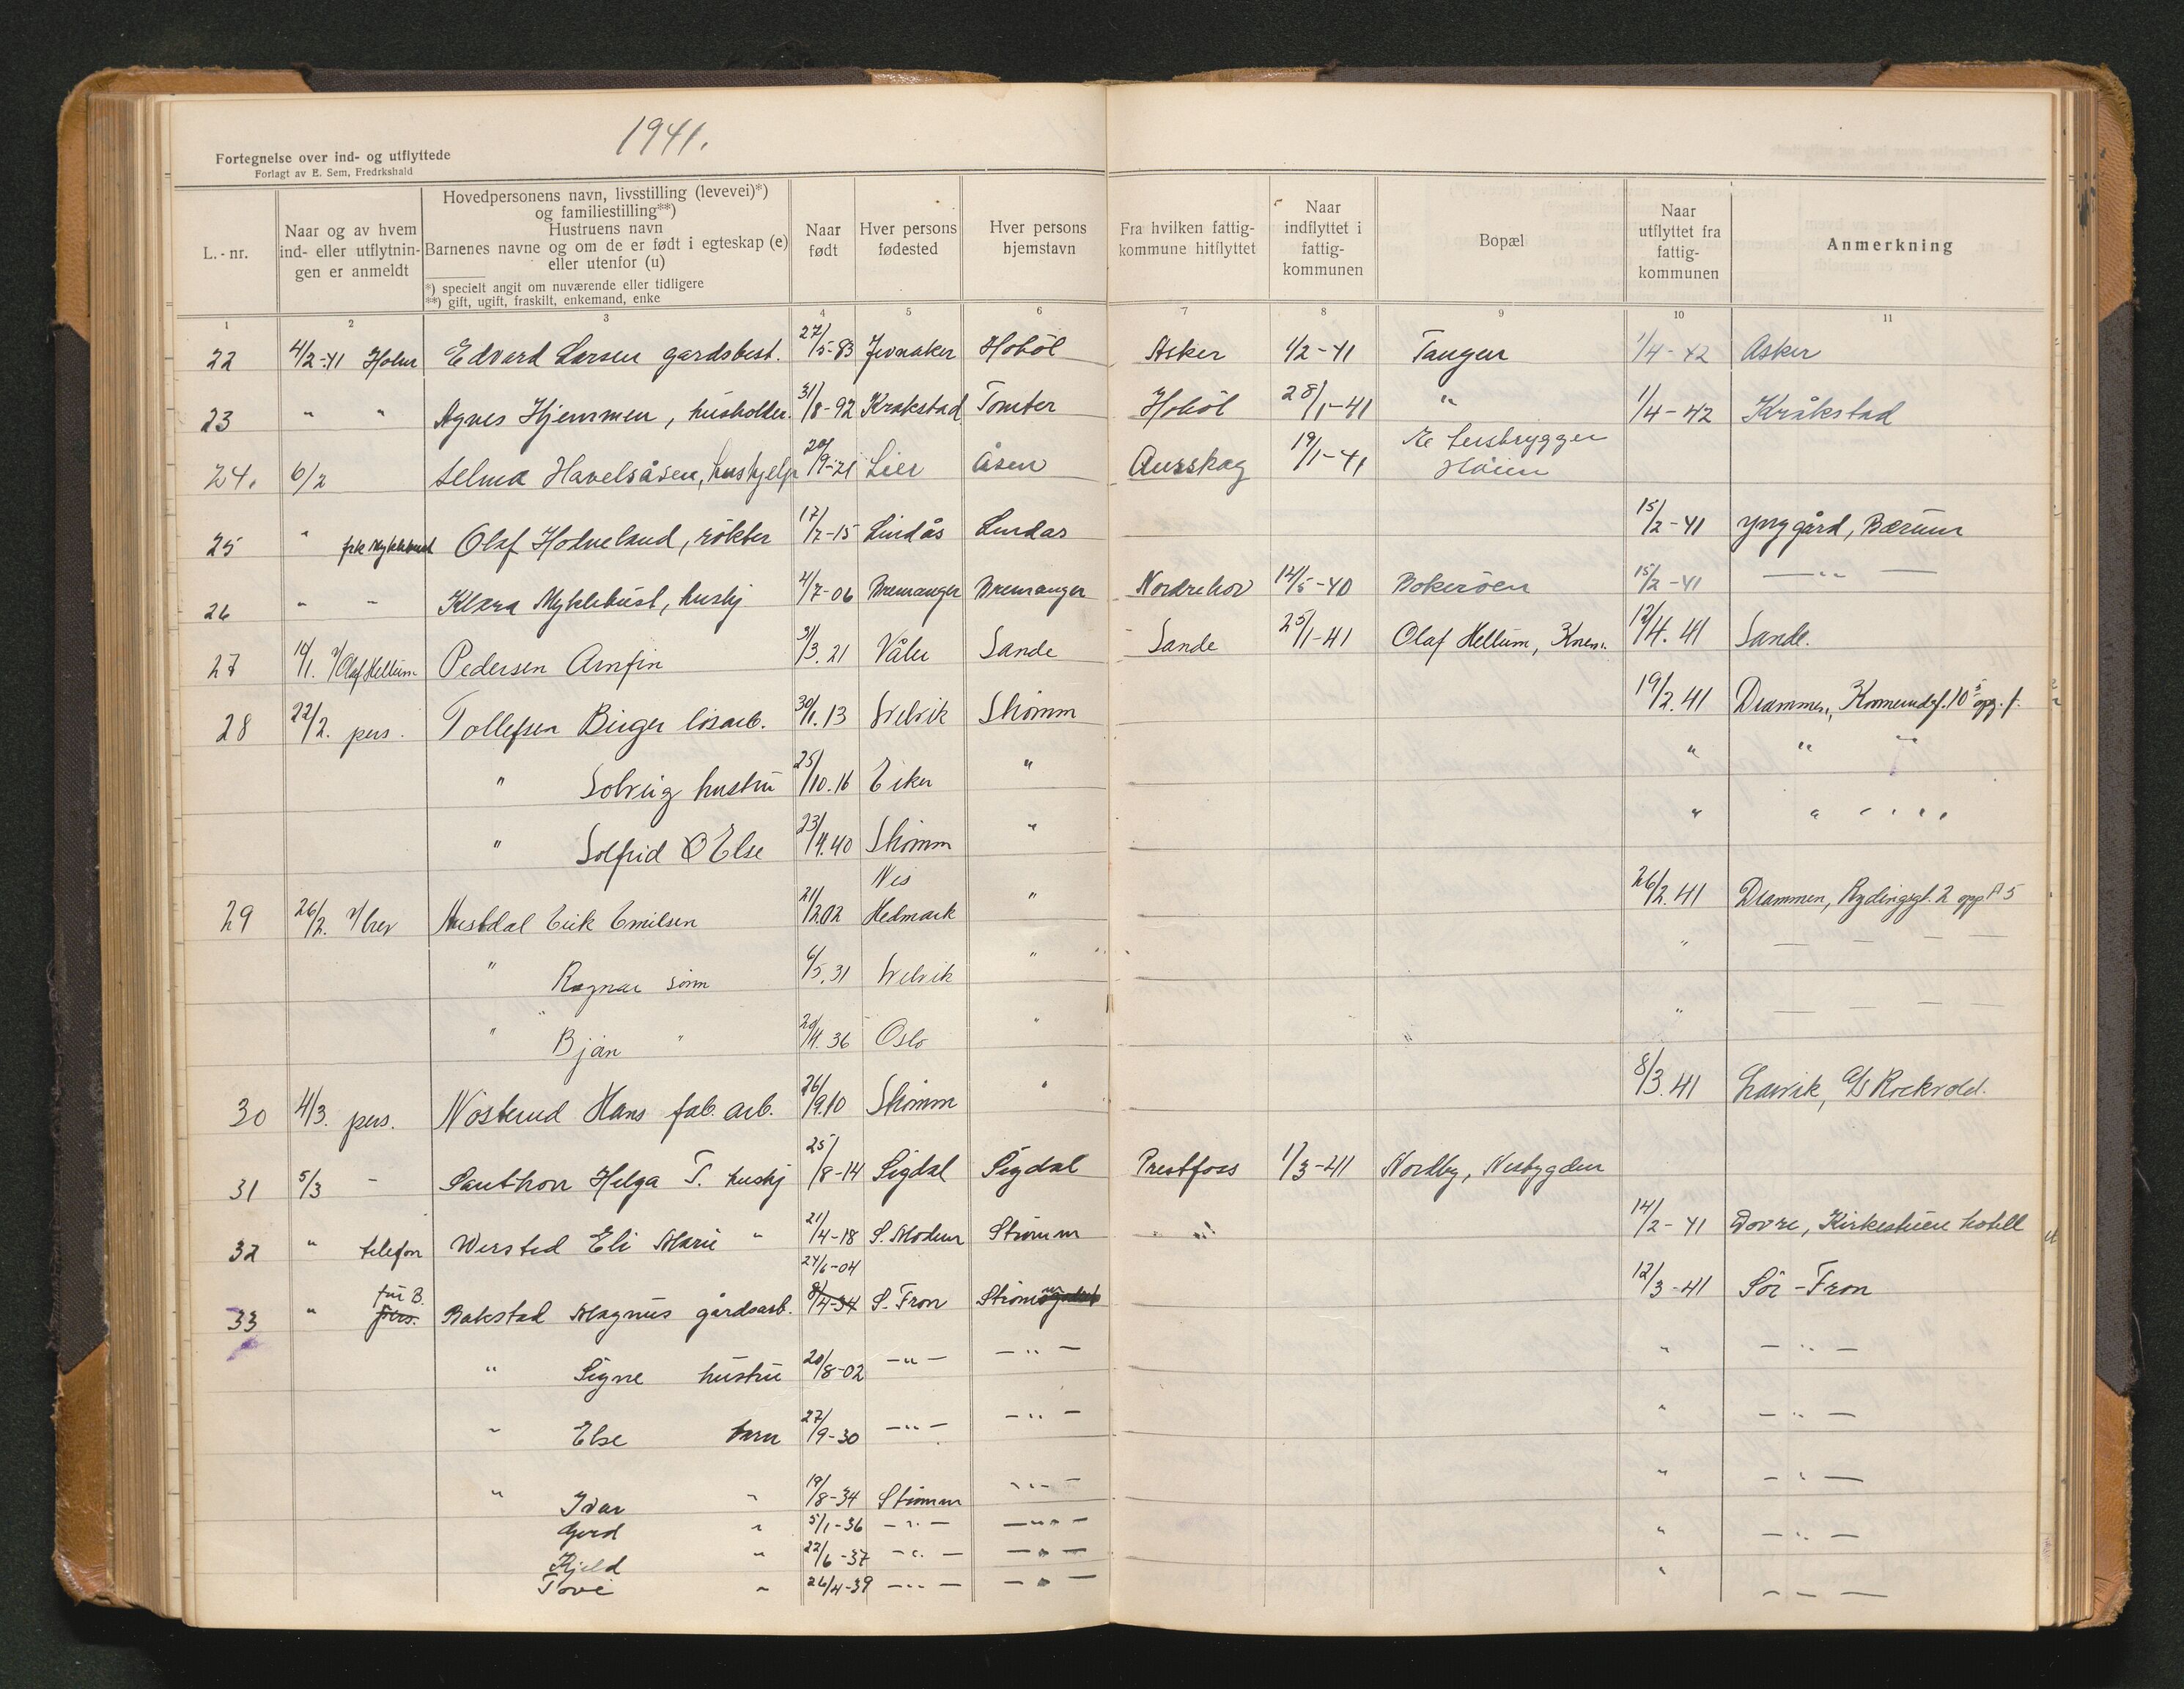 1941.
Fortegnelse over ind- og utflyttede
Forlagt av E. Sem, Fredrkshald
L.-nr.
Naar og av hvem
ind- eller utflytnin-
gen er anmeldt
Hovedpersonens navn, livsstilling (levevei)*)
og familiestilling**)
Hustruens navn
Barnenes navne og om de er født i egteskap (e)
eller utenfor (u)
*) specielt angit om nuværende eller tidligere
**) gift, ugift, fraskilt, enkemand, enke
Naar
født
Hver persons
fødested
Hver persons
hjemstavn
Fra hvilken fattig-
kommune hitflyttet
Naar
indflyttet i
fattig-
kommunen
Bopæl
Naar
utflyttet fra
fattig-
kommunen
Anmerkning
1 2 3 4 5 6 7 8 9 10 11
22 4/2-41 Holm Edvard Larsen gardsbest. 27/5-83 Jevnaker Hobøl Asker 1/2-41 Tangen 1/4-42 Asker
23 " " Agnes Hjemmen, husholder. 31/8-92 Kråkstad Tomter Hobøl 28/1-41 " 1/4-42 Kråkstad
24. 6/2 Selma Havelsåsen, hushjelp 20/9-21 Lier Åsen Aurskog 19/1-41
25 " frk Myklebust Olaf Holmeland, røkter 17/7-15 Lindås Lindas 15/2-41 gård, Bærum
26 " " Klara Myklebust, hushj 4/7-06 Bremanger Bremanger Nordrehov 14/5-40 Bokerøen 15/2-41 — " —
27 v/Olaf Hellum Pedersen Arnfin 31/3.21 Våler Sande Sande 25/1-41 Olaf Hellum, 12/4.41 Sande.
28 22/2. pers. Tollefsen Birger løsarb. 30/1.13 Svelvik Skomm 19/2.41 Drammen,
" Solveig hustru 25/10.16 Eiker " " " "
" Solfrid Else 23/4.40 Skomm " " " " " "
Nes
29 26/2. v/brev Nustdal Erik Emilsen 21/2.02 Hedmark " 26/2.41 Drammen, Rydingsgt. 2 opp. A 5
" Ragnar sønn 6/5.31 Svelvik " " — — — —
" Bjøn " 20/4.36 Oslo " " — — — —
30 4/3. pers. Nøsterud Hans fab. arb. 26/9.10 Skomm " 8/3.41 Larvik, A/S Rockvold.
31 5/3 - Santhon Helga T. hushj 25/8-14 Sigdal Sigdal Prestfoss 1/3-41 Nordby, Nesbygden
32 " telefon Wersted Eli Marie " 21/4-18 S. Modum Strømm 14/2-41 Dovre, Kirkestuen hotell
24/6-04
fru B.
33 " pers. Bakstad Magnus gårdsarb. 8/4-34 S. Fron Strømm 12/3-41 Sør-Fron
" Signe hustru 20/8-02 — " — — " — " — " —
" Else barn 27/9-30 — " — — " — " — " —
" Ivar " 19/8-34 Strømm " " — " —
Gerd " 5/1-36 — " — — " — " — " —
Kjeld " 22/6-37 — " — — " — "
Tove " 26/4-39 — " — — " — — " —